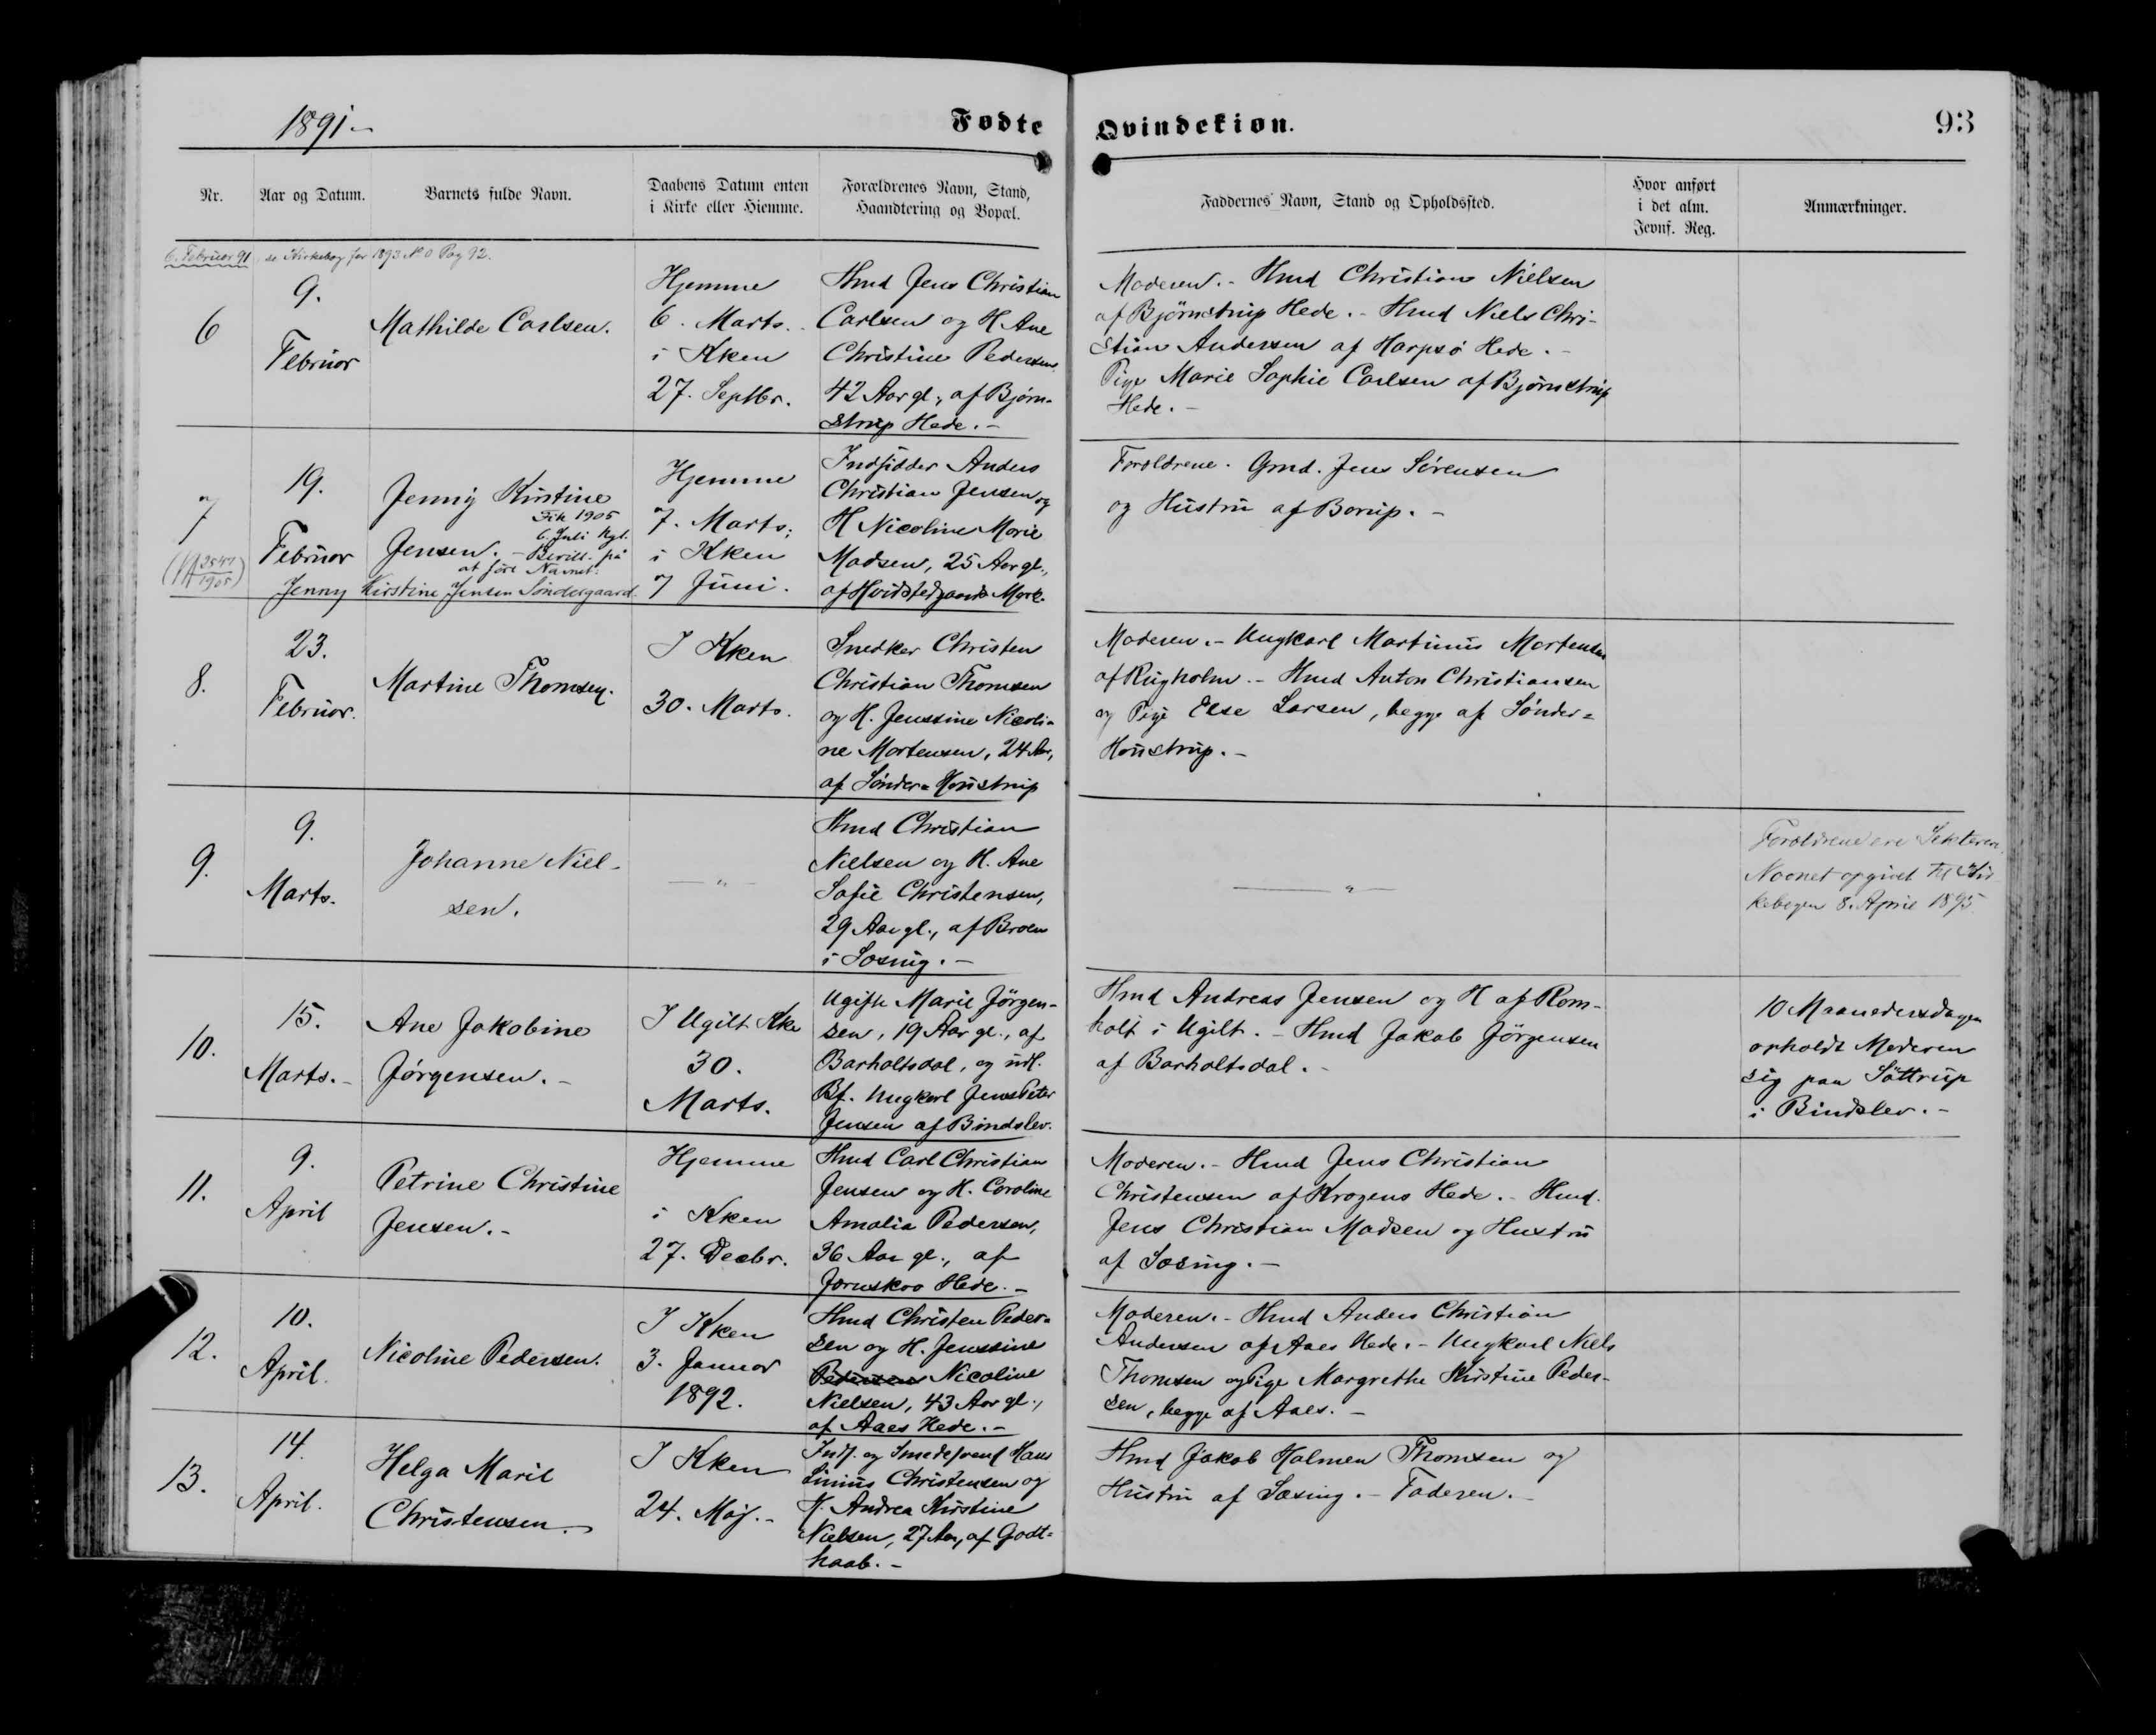 1891.-
Fødte
Qvindekiøn.
93
Nr.
Aar og Datum.
Barnets fulde Navn.
Daabens Datum enten
i Kirke eller Hiemme.
Forældrenes Navn, Stand,
Haandtering og Bopæl.
Faddernes Navn, Stand og Opholdssted.
Hvor anført
i det alm.
Jevnf. Reg.
Anmærkninger.
6. Februar 91, se Kirkebog for 1893 No 0 Pag 92.
6
9.
Februar
Mathilde Carlsen.
Hjemme
6. Marts.
i Kken
27. Septbr.
Hmd Jens Christian
Carlsen og H Ane
Christine Pedersen
42 Aar gl., af Bjørn-
strup Hede.-
Moderen.- Hmd Christian Nielsen
af Bjørnstrup Hede.- Hmd Niels Chri-
stian Andersen af Harpsø Hede.-
Pige Marie Sophie Carlsen af Bjørnstrup
Hede.-
7
19.
Februar
Jennÿ Kirstine
Jensen.-
Fik 1905
6. Juli Kgl.
Bevill. på
at føre Navnet:
Jenny Kirstine Jensen Søndergaard.
1905
Hjemme
7. Marts;
i Kken
7 Juni.
Indsidder Anders
Christian Jensen og
H Nicoline Marie
Madsen, 25 Aar gl.,
af Hvidstedgaards Mark.
Forældrene. Gmd. Jens Sörensen
og Hustru af Borup.-
8.
23.
Februar.
Martine Thomsen.
I Kken
30. Marts.
Snedker Christen
Christian Thomsen
og H. Jenssine Nicoli-
ne Mortensen, 24 Aar,
af Sönder-Houstrup
Moderen.- Ungkarl Martinus Mortensen
af Rugholm.- Hmd Anton Christiansen
og Pige Else Larsen, begge af Sönder=
Houstrup.-
9.
9.
Marts.
Johanne Niel-
sen.
-"-
Hmd Christian
Nielsen og H. Ane
Sofie Christensen,
29 Aar gl., af Broen
i Sæsing.-
-"-
Forældrene ere Sekterere,
Navnet opgivet til Kir
kebogen 8. April 1895.
10.
15.
Marts.-
Ane Jakobine
Jørgensen.-
I Ugilt Kke
30.
Marts.
Ugifte Marie Jörgen-
sen, 19 Aar gl., af
Barholtsdal, og udl.
Bf. Ungkarl Jens Peter
Jensen af Bindslev.
Hmd Andreas Jensen og H af Rom-
holt i Ugilt.- Hmd Jakob Jörgensen
af Barholtsdal.-
10 Maanedersdagen
opholdt Moderen
sig paa Söttrup
i Bindslev.-
11.
9.
April
Petrine Christine
Jensen.-
Hjemme
i Kken
27. Decbr.
Hmd Carl Christian
Jensen og H. Caroline
Amalia Pedersen,
36 Aar gl., af
Hede.-
Moderen.- Hmd Jens Christian
Christensen af Krogens Hede.- Hmd.
Jens Christian Madsen og Hustru
af Sæsing.-
12.
10.
April.
Nicoline Pedersen.
I Kken
3. Januar
1892.
Hmd Christen Peder-
sen og H. Jenssine
Pedersen Nicoline
Nielsen, 43 Aar gl.,
af Aaes Hede.-
Moderen.- Hmd Anders Christian
Andersen af Aaes Hede.- Ungkarl Niels
Thomsen og Pige Margrethe Kirstine Peder-
sen, begge af Aaes.-
13.
14.
April.
Helga Marie
Christensen.-
I Kken
24. Maj.-
Inds. og Smedesvend Hans
Linius Christensen og
H. Andrea Kirstine
Nielsen, 27 Aar, af Godt=
haab.-
Hmd Jakob Halmen Thomsen og
Hustru af Sæsing.- Faderen.-